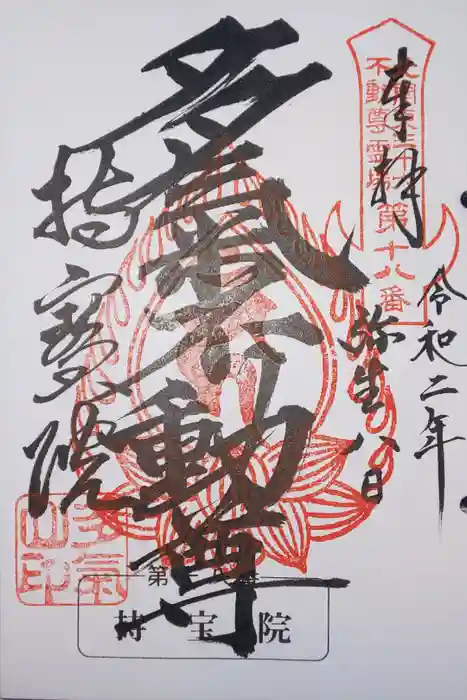 奉拝
北関東三十六
不動尊霊場
第十八番
令和二年
弥生八日
多氣不動尊
持寳院
多氣
山印
第十八番
持宝院